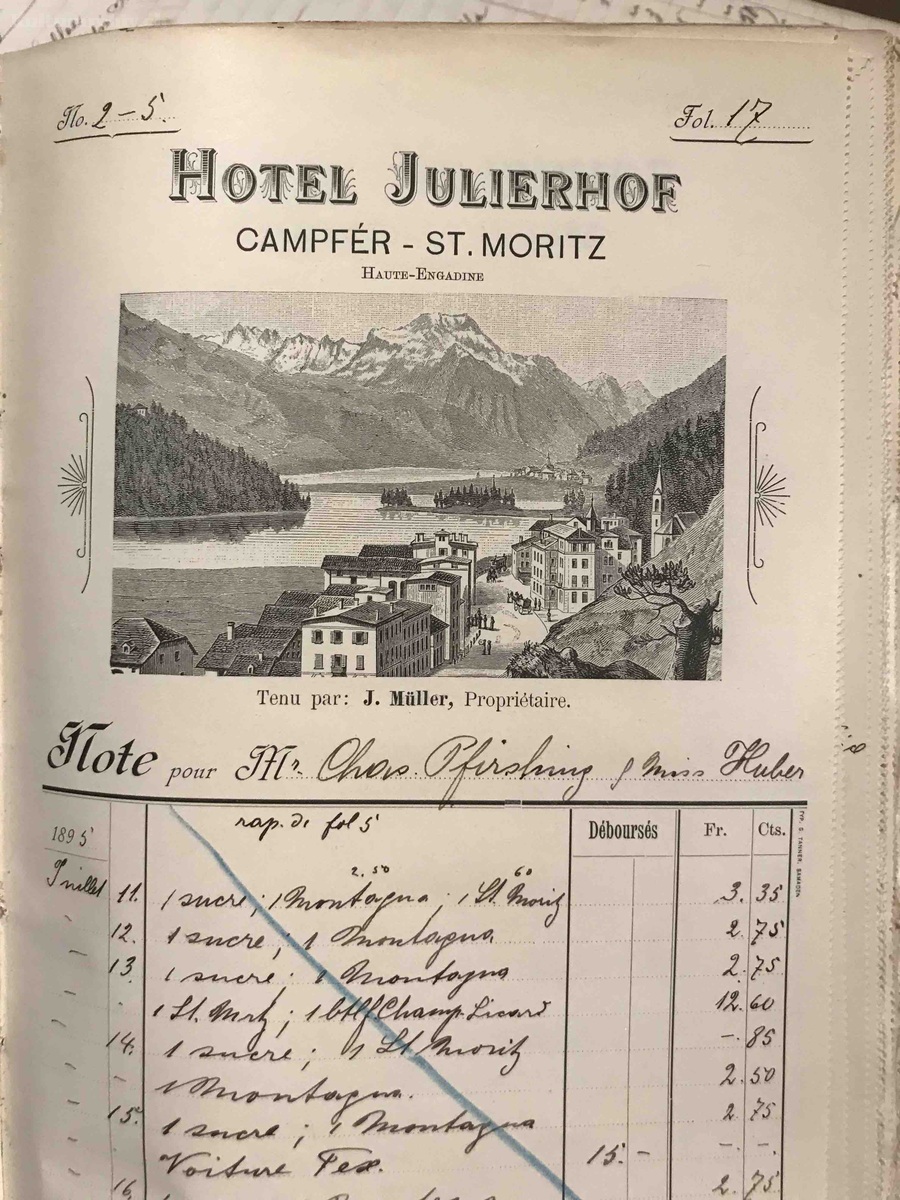 No. 2-5.
Fol. 17
HOTEL JULIERHOF
CAMPFÉR - ST. MORITZ
HAUTE-ENGADINE
Tenu par: J. Müller, Propriétaire.
Note pour Mr. Chas. Pfirshing & Miss Huber
rap. de fol 5
Déboursés Fr. Cts.
1895
2.50 60
Juillet 11. 1 sucre; 1 Montagna; 1 St. Moritz 3. 35
" 12. 1 sucre; 1 Montagna 2. 75
" 13 1 sucre; 1 Montagna 2. 75
" " 1 St. Mrtz; 1 btlf Champ. 12. 60
" 14. 1 sucre; 1 St. Moritz -. 85
" " 1 Montagna. 2. 50
" 15. 1 sucre; 1 Montagna 2. 75
" Voiture Fex. 15. - -. -.
16. 2. 75
TYP. S. TANNER, SAMADEN